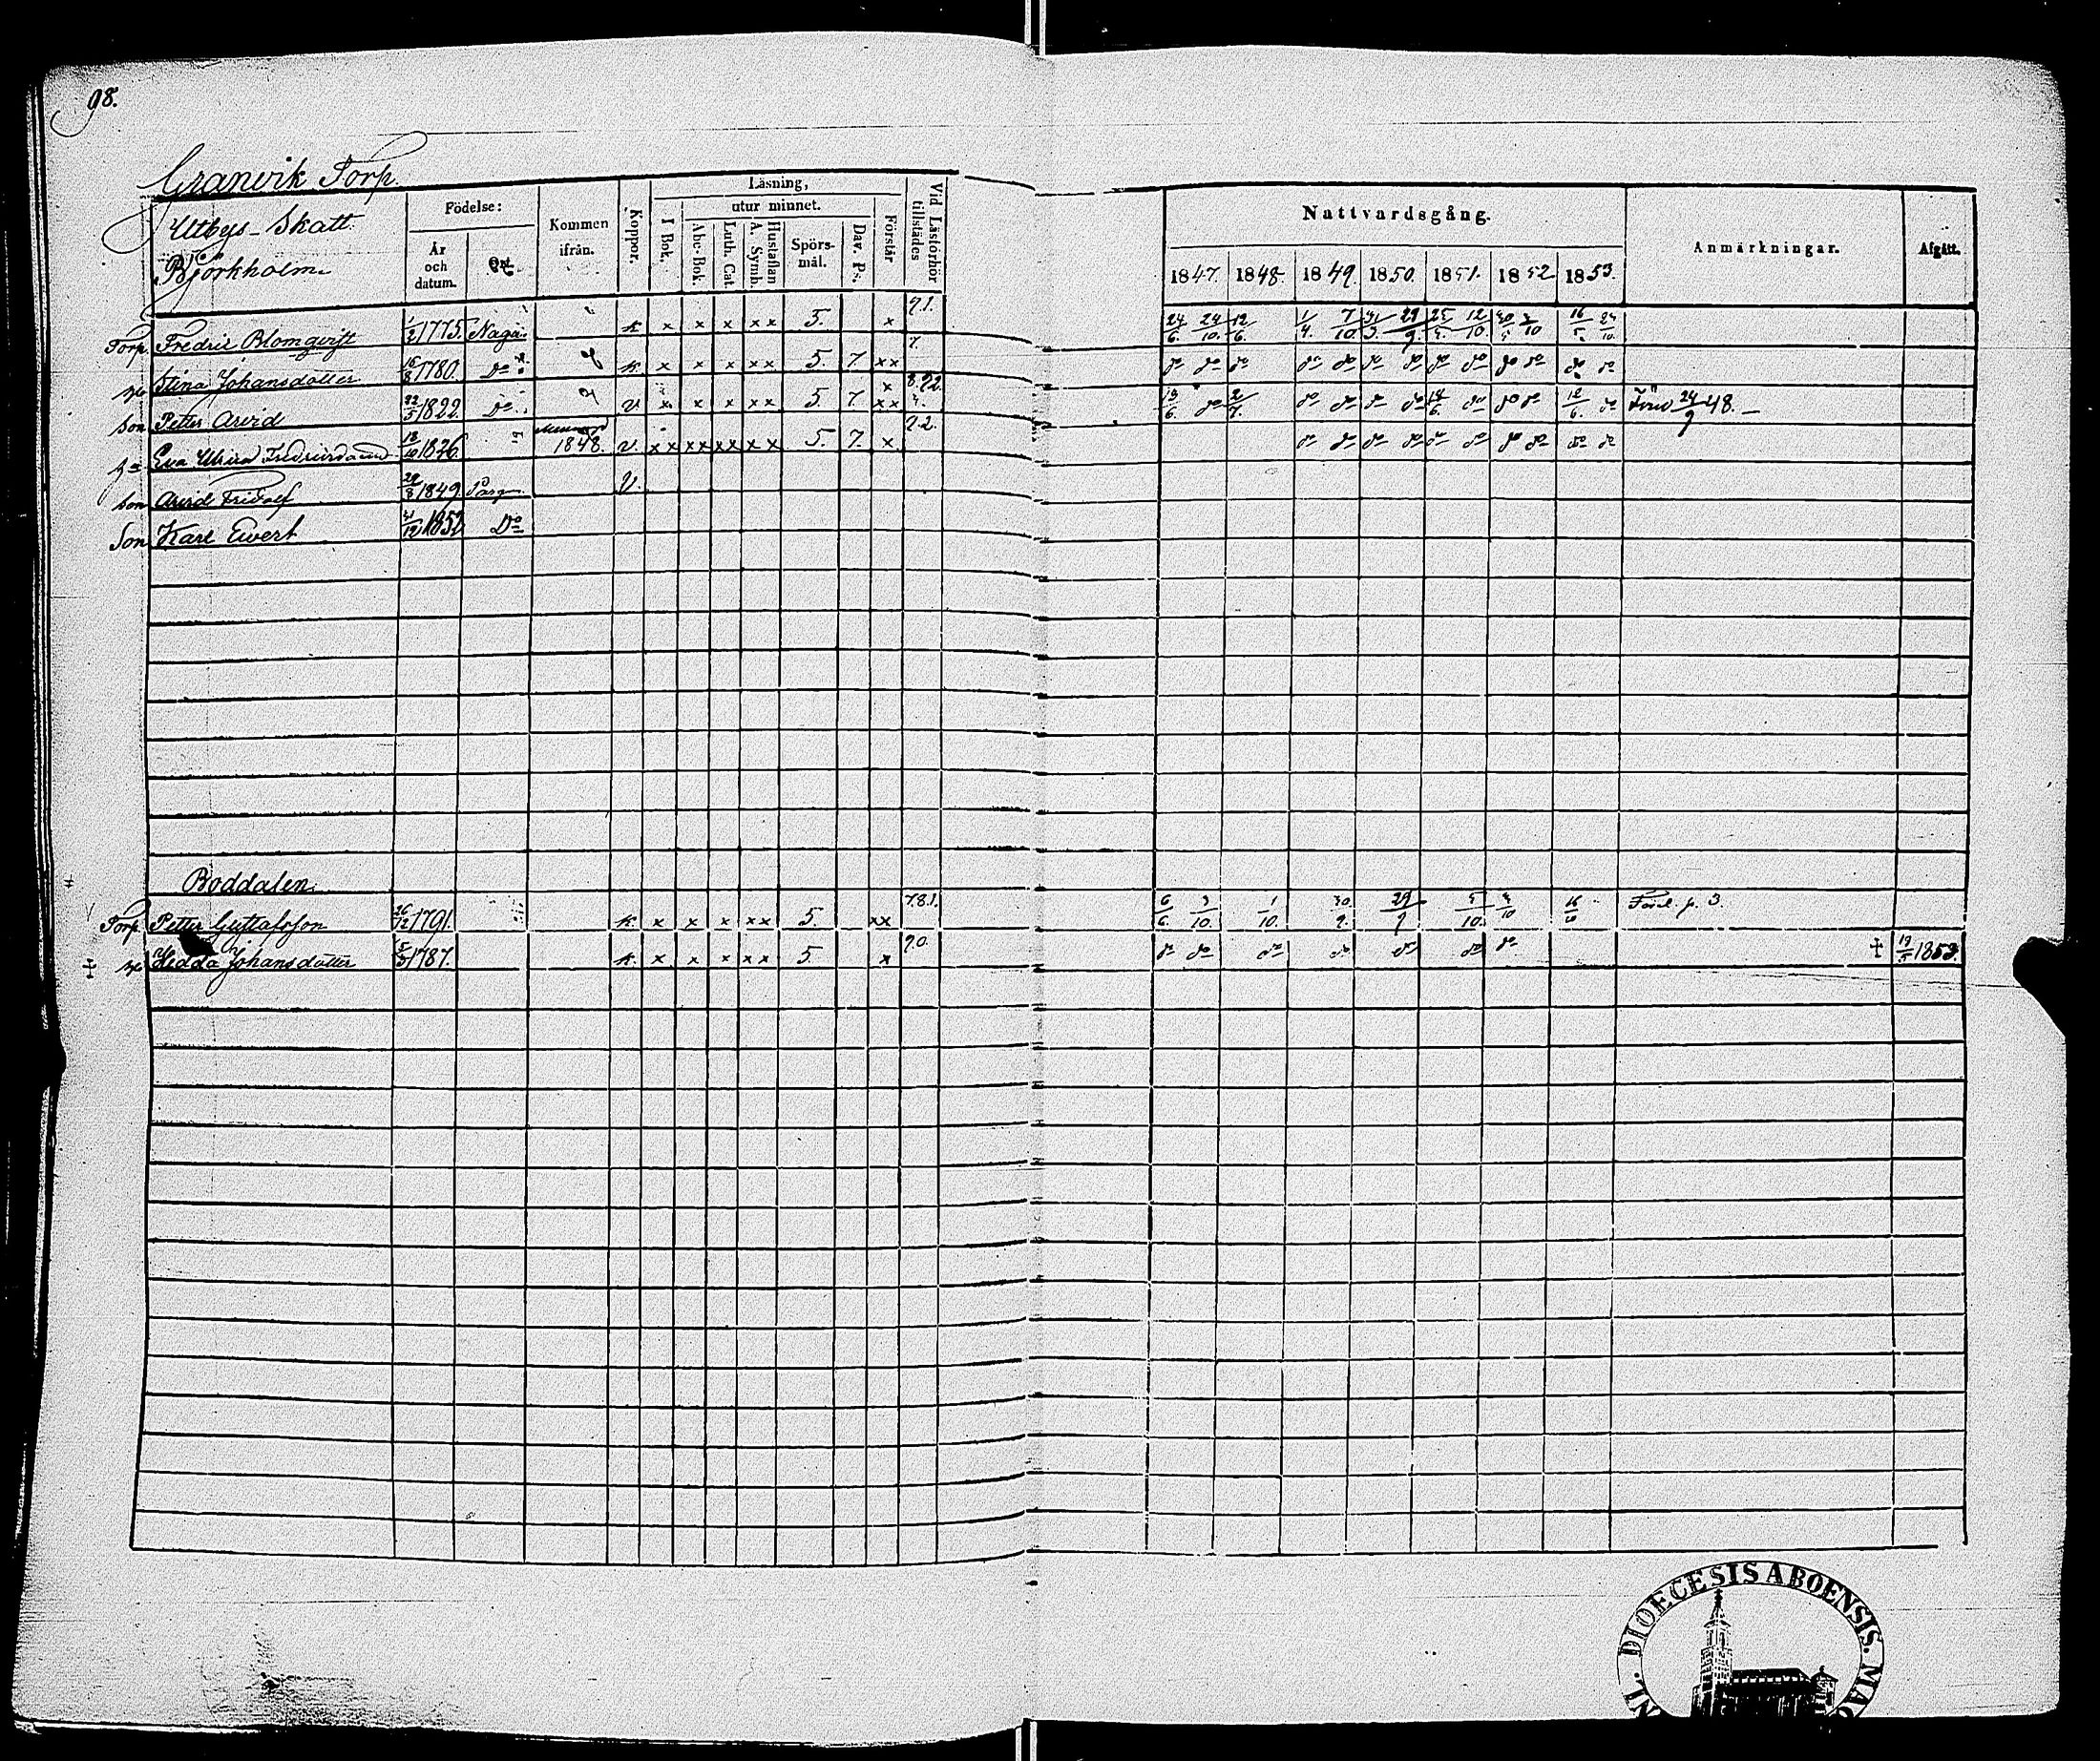 98.
Granvik Torp.
Utbys-Skatt.
Björkholm.
Födelse: År och datum. Ort. Kommen ifrån. Koppor. Läsning, I Bok. utur minnet. Abc-Bok. Luth. Cat. Hustaflan A. Symb. Spörs-mål. Dav. Ps. Förstår Vid Läsförhör tillstädes Nattvardsgång. 1847. 1848. 1849. 1850. 1851. 1852 1853. Anmärkningar. Afgått.
Torp. Fredric Blomqvist 1/2 1775. Nagu. k x x x x x 5. x 9.1. 24/6. 24/10. 12/6. 1/4. 7/10. 29/9. 12/10.
Stina Johansdotter 16/8 1780. Do k. x x x x x 5. 7. x x 7. do do do do do do do do do do do do do
Son Petter Arvid 22/5 1822. Do v x x x x x 5. 7. x x x 13/6. do 2/7. do do do do do do do 12/6. do 24/9 48.
Eva Ulrica 18/10 1826 1848. v. x x x x x x x x 5. 7. x. 9.2. do do do do do do do do do do
Son Arvid Fridolf 29/8 1849. Parg. v.
Son Karl Evert 21/12 1852 Do
Boddalen.
Torp. Petter Gustafsson 26/12 1791. k. x x x x x 5. x x 7.8.1. 6/6. 3/10. 1/10. 30/9. 29/9 5/10. p. 3.
Hedda Johansdotter 5/5 1787. k. x x x x x 5. x 9.0. do do do do do do do † 19/5 1853.
DIOECESIS ABOENSIS. MAG